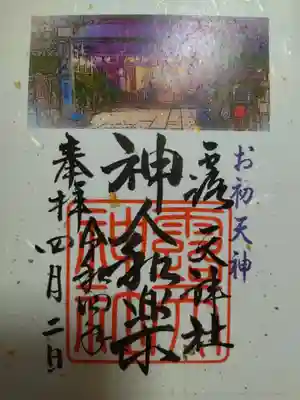 お初天神
露天神社
神人和楽
奉拝 令和四年
四月二日